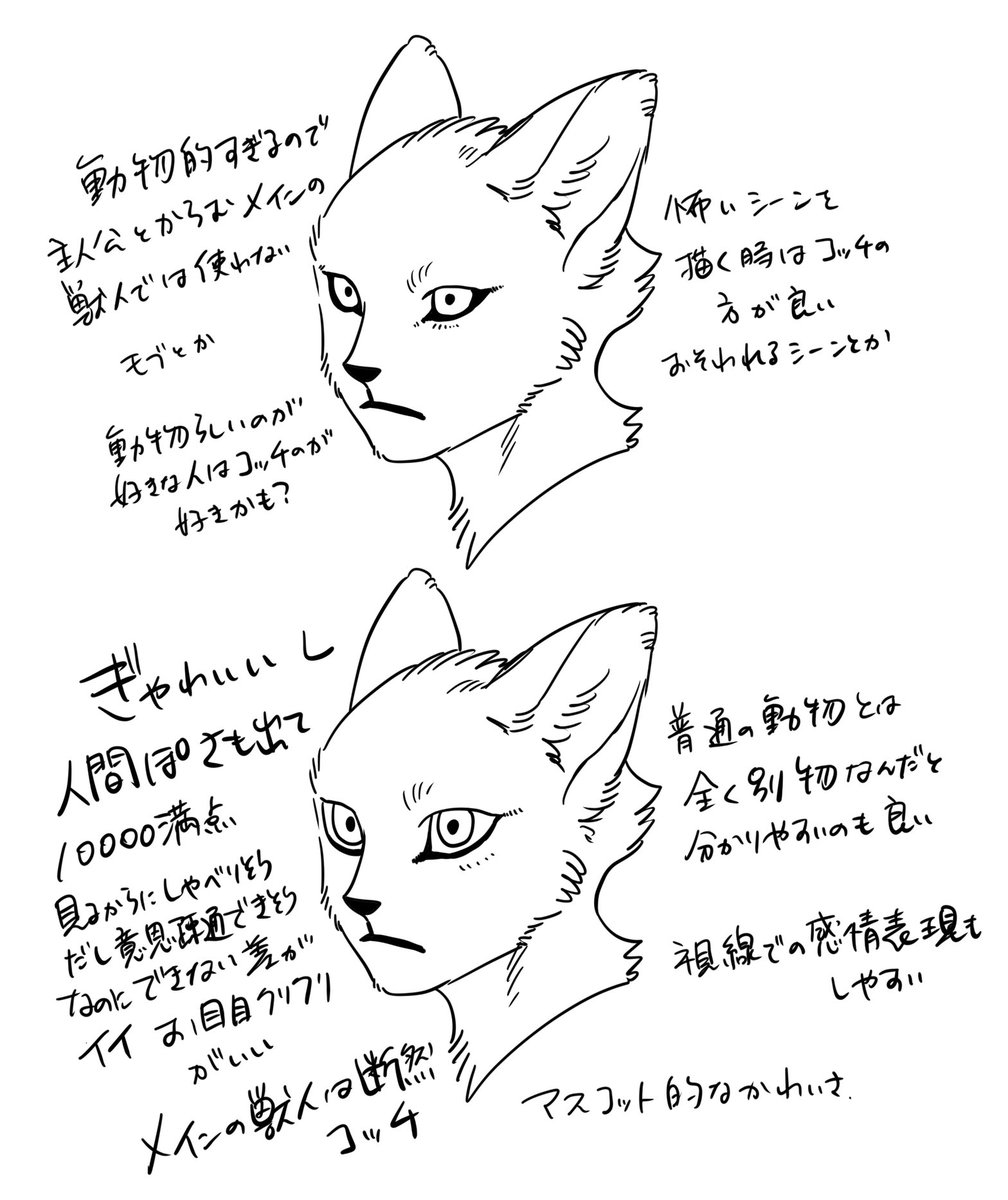 動物的すぎるので
主人公とからむメインの
獣人では使れない
モブとか
動物らしいのが
好きな人はコッチのが
好きかも?
怖いシーンを
描く時はコッチの
方が良い
おそわれるシーンとか
ぎゃわいいし
人間ぽさも出て
10000満点
見るからにしゃべりそう
だし意思疎通できそう
なのにできない差が
イイ お目目クリクリ
がいい
メインの獣人は断然
コッチ
普通の動物とは
全く別物なんだと
分かりやすいのも良い
視線での感情表現も
しやすい
マスコット的なかわいさ